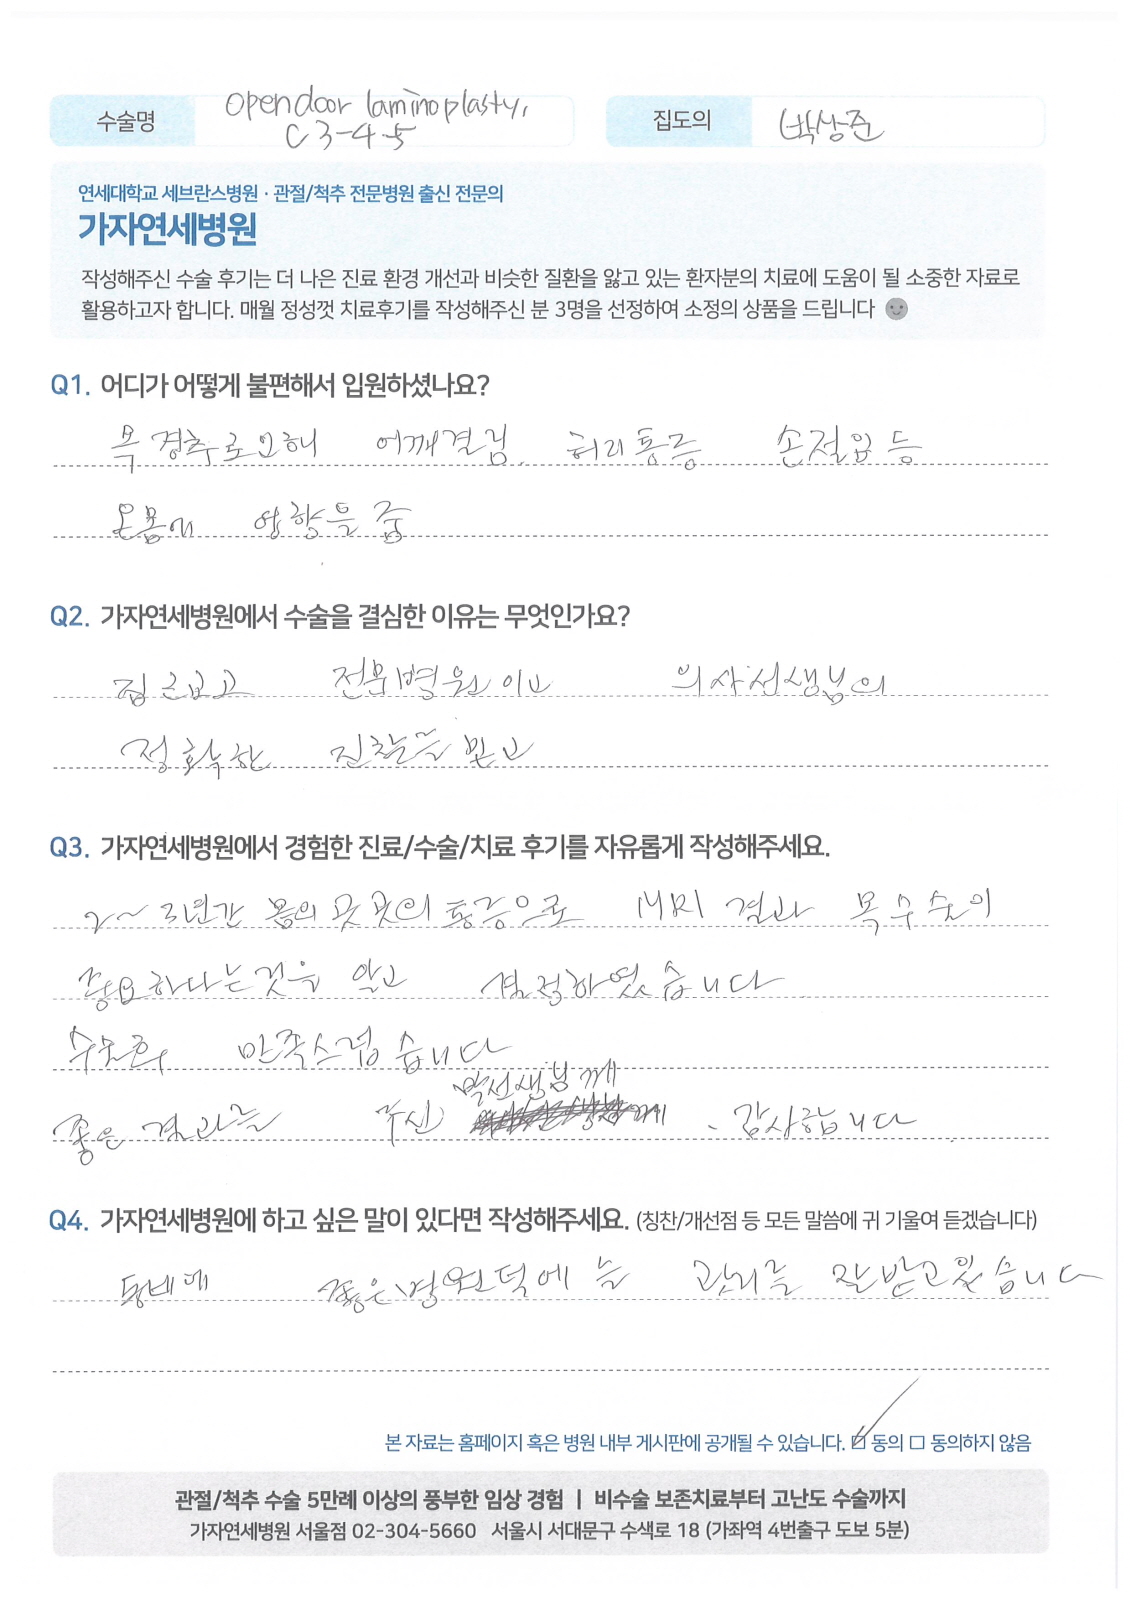 수술명 Open door laminoplasty, C 3-4-5 집도의 박상준
연세대학교 세브란스병원 · 관절/척추 전문병원 출신 전문의
가자연세병원
작성해주신 수술 후기는 더 나은 진료 환경 개선과 비슷한 질환을 앓고 있는 환자분의 치료에 도움이 될 소중한 자료로
활용하고자 합니다. 매월 정성껏 치료후기를 작성해주신 분 3명을 선정하여 소정의 상품을 드립니다
Q1. 어디가 어떻게 불편해서 입원하셨나요?
목 경추로 인해 어깨결림. 허리통증 손절임 등
온몸에 영향을 줌
Q2. 가자연세병원에서 수술을 결심한 이유는 무엇인가요?
집 근처고 전문병원이고 의사선생님의
정확한 진찰을 받고
Q3. 가자연세병원에서 경험한 진료/수술/치료 후기를 자유롭게 작성해주세요.
2~3년간 몸의 곳곳의 통증으로 MRI 결과 목수술이
중요하다는것을 알고 결정하였습니다
수술후 만족스럽습니다
박선생님께
좋은 결과를 주신 감사합니다
Q4. 가자연세병원에 하고 싶은 말이 있다면 작성해주세요. (칭찬/개선점 등 모든 말씀에 귀 기울여 듣겠습니다)
동네에 좋은병원덕에 늘 관리를 잘받고있습니다
본 자료는 홈페이지 혹은 병원 내부 게시판에 공개될 수 있습니다. ☑ 동의 □ 동의하지 않음
관절/척추 수술 5만례 이상의 풍부한 임상 경험 | 비수술 보존치료부터 고난도 수술까지
가자연세병원 서울점 02-304-5660 서울시 서대문구 수색로 18 (가좌역 4번출구 도보 5분)